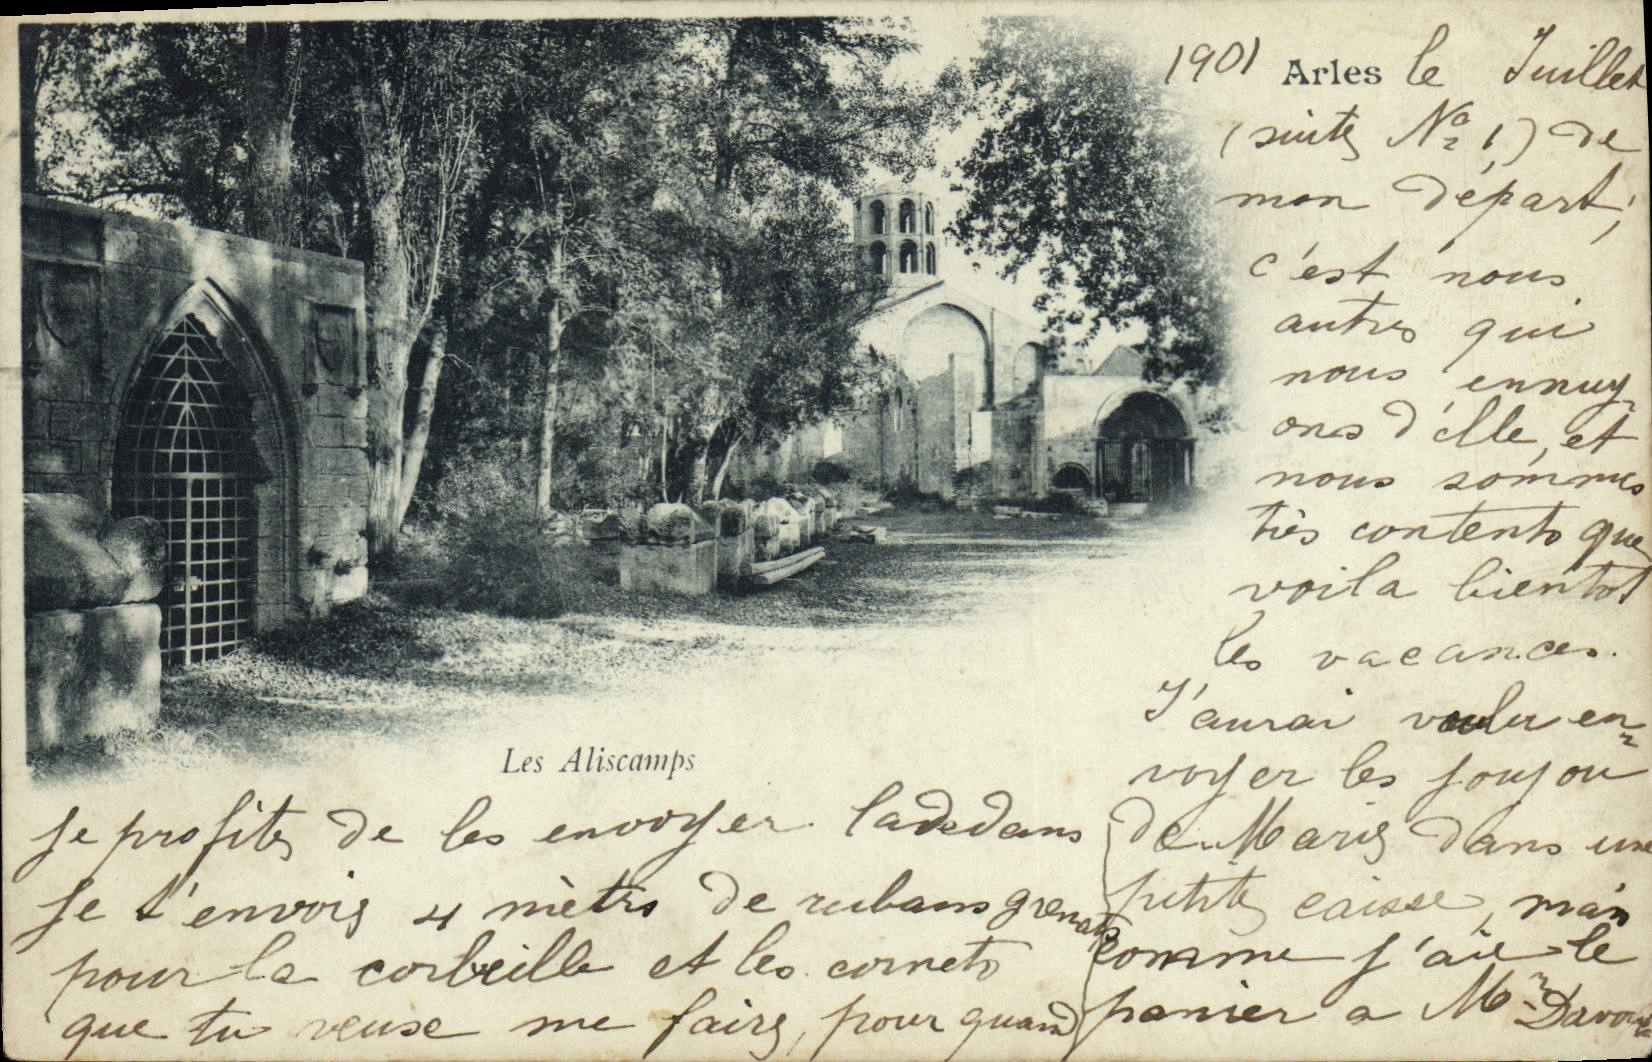 1901 Arles le Juillet
(suite No 1) de
mon départ;
c'est nous
autres qui
nous ennuy-
ons d'elle, et
nous sommes
très contents que
voila bientot
les vacances.
J'aurai voulu en-
voyer les joujou
de Marie dans une
petite caisse, mais
comme j'ai le
panier a Mr
Les Aliscamps
je profite de les envoyer ladedans
je t'envoie 4 mètres de rubans grenats
pour la corbeille et les cornets
que tu veuse me faire, pour quand